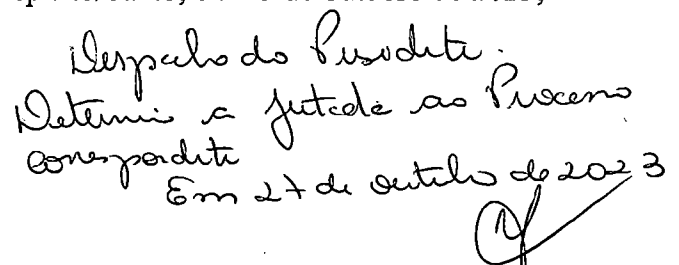 Despacho do Presidente.
Determino a juntada ao Processo
correspondente
Em 27 de outubro de 2023